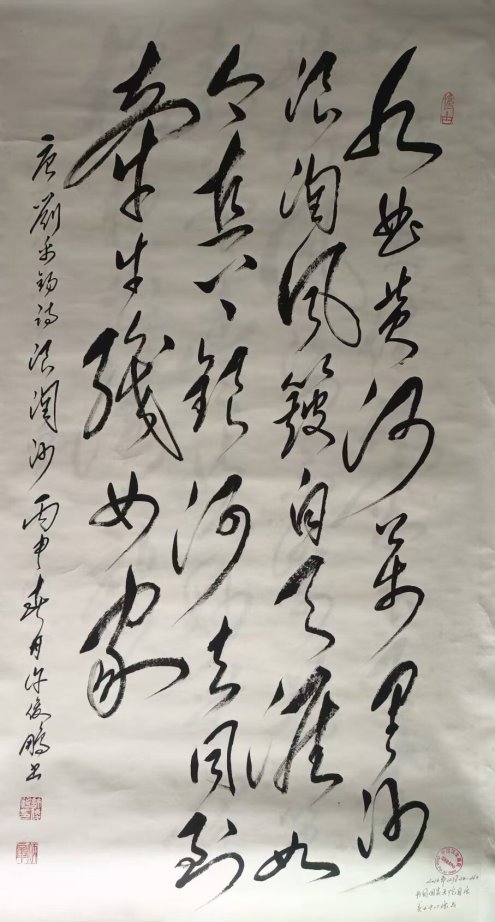 九曲黄河萬里沙
浪淘风簸自天涯如
今直上银河去同到
牵牛织女家
唐劉禹锡诗浪淘沙 丙申春月许俊鹏书